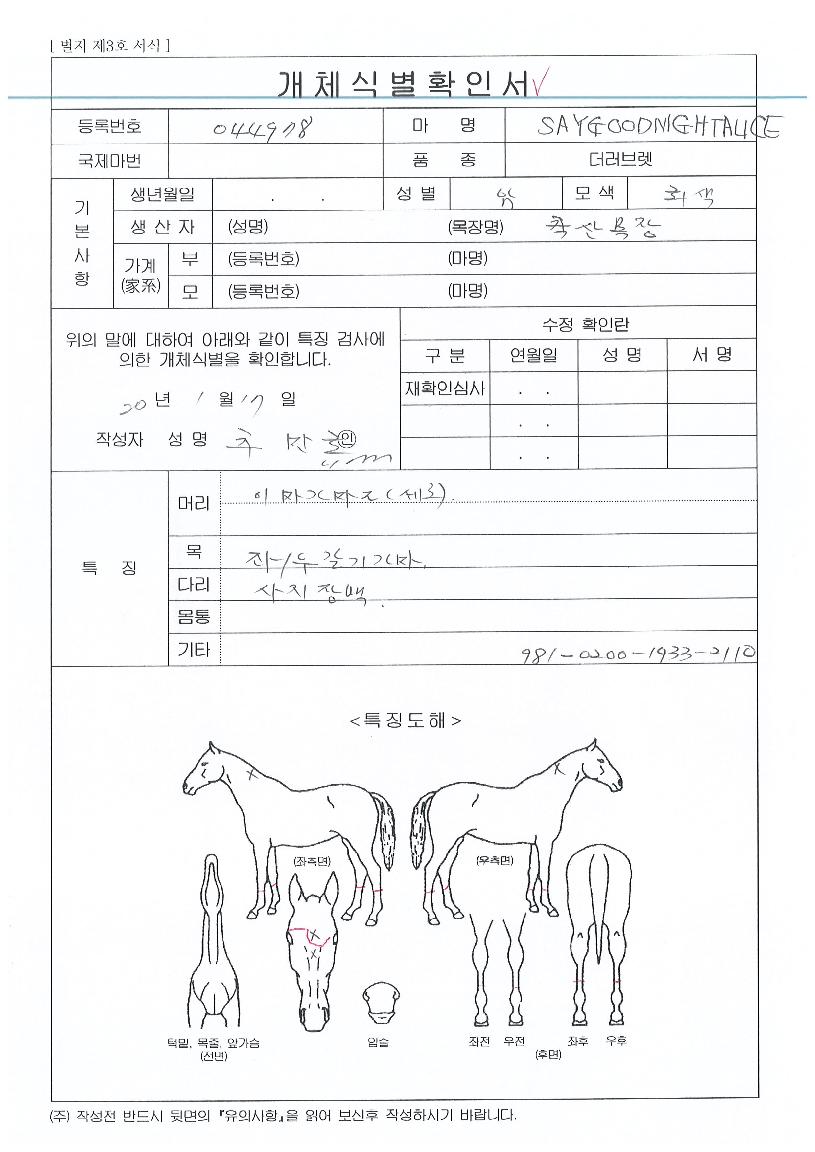 [ 별지 제3호 서식 ]
개체식별확인서
등록번호 044978 마 명 SAYGOODNIGHTALICE
국제마번 품 종 더러브렛
기본사항
생년월일 . . 성별 암 모색 회색
생산자 (성명) (목장명) 목장
가계(家系) 부 (등록번호) (마명)
모 (등록번호) (마명)
위의 말에 대하여 아래와 같이 특징 검사에
의한 개체식별을 확인합니다.
20 년 1 월 17 일
작성자 성명 추 만 인
수정 확인란
구분 연월일 성명 서명
재확인심사 . .
. .
. .
특 징
머리
목 좌/우
다리 사지장백.
몸통
기타 981-0200-1933-2110
<특징도해>
(좌측면) (우측면)
턱밑, 목줄, 앞가슴 입술 좌전 우전 좌후 우후
(선년) (후면)
(주) 작성전 반드시 뒷면의 『유의사항』을 읽어 보신후 작성하시기 바랍니다.